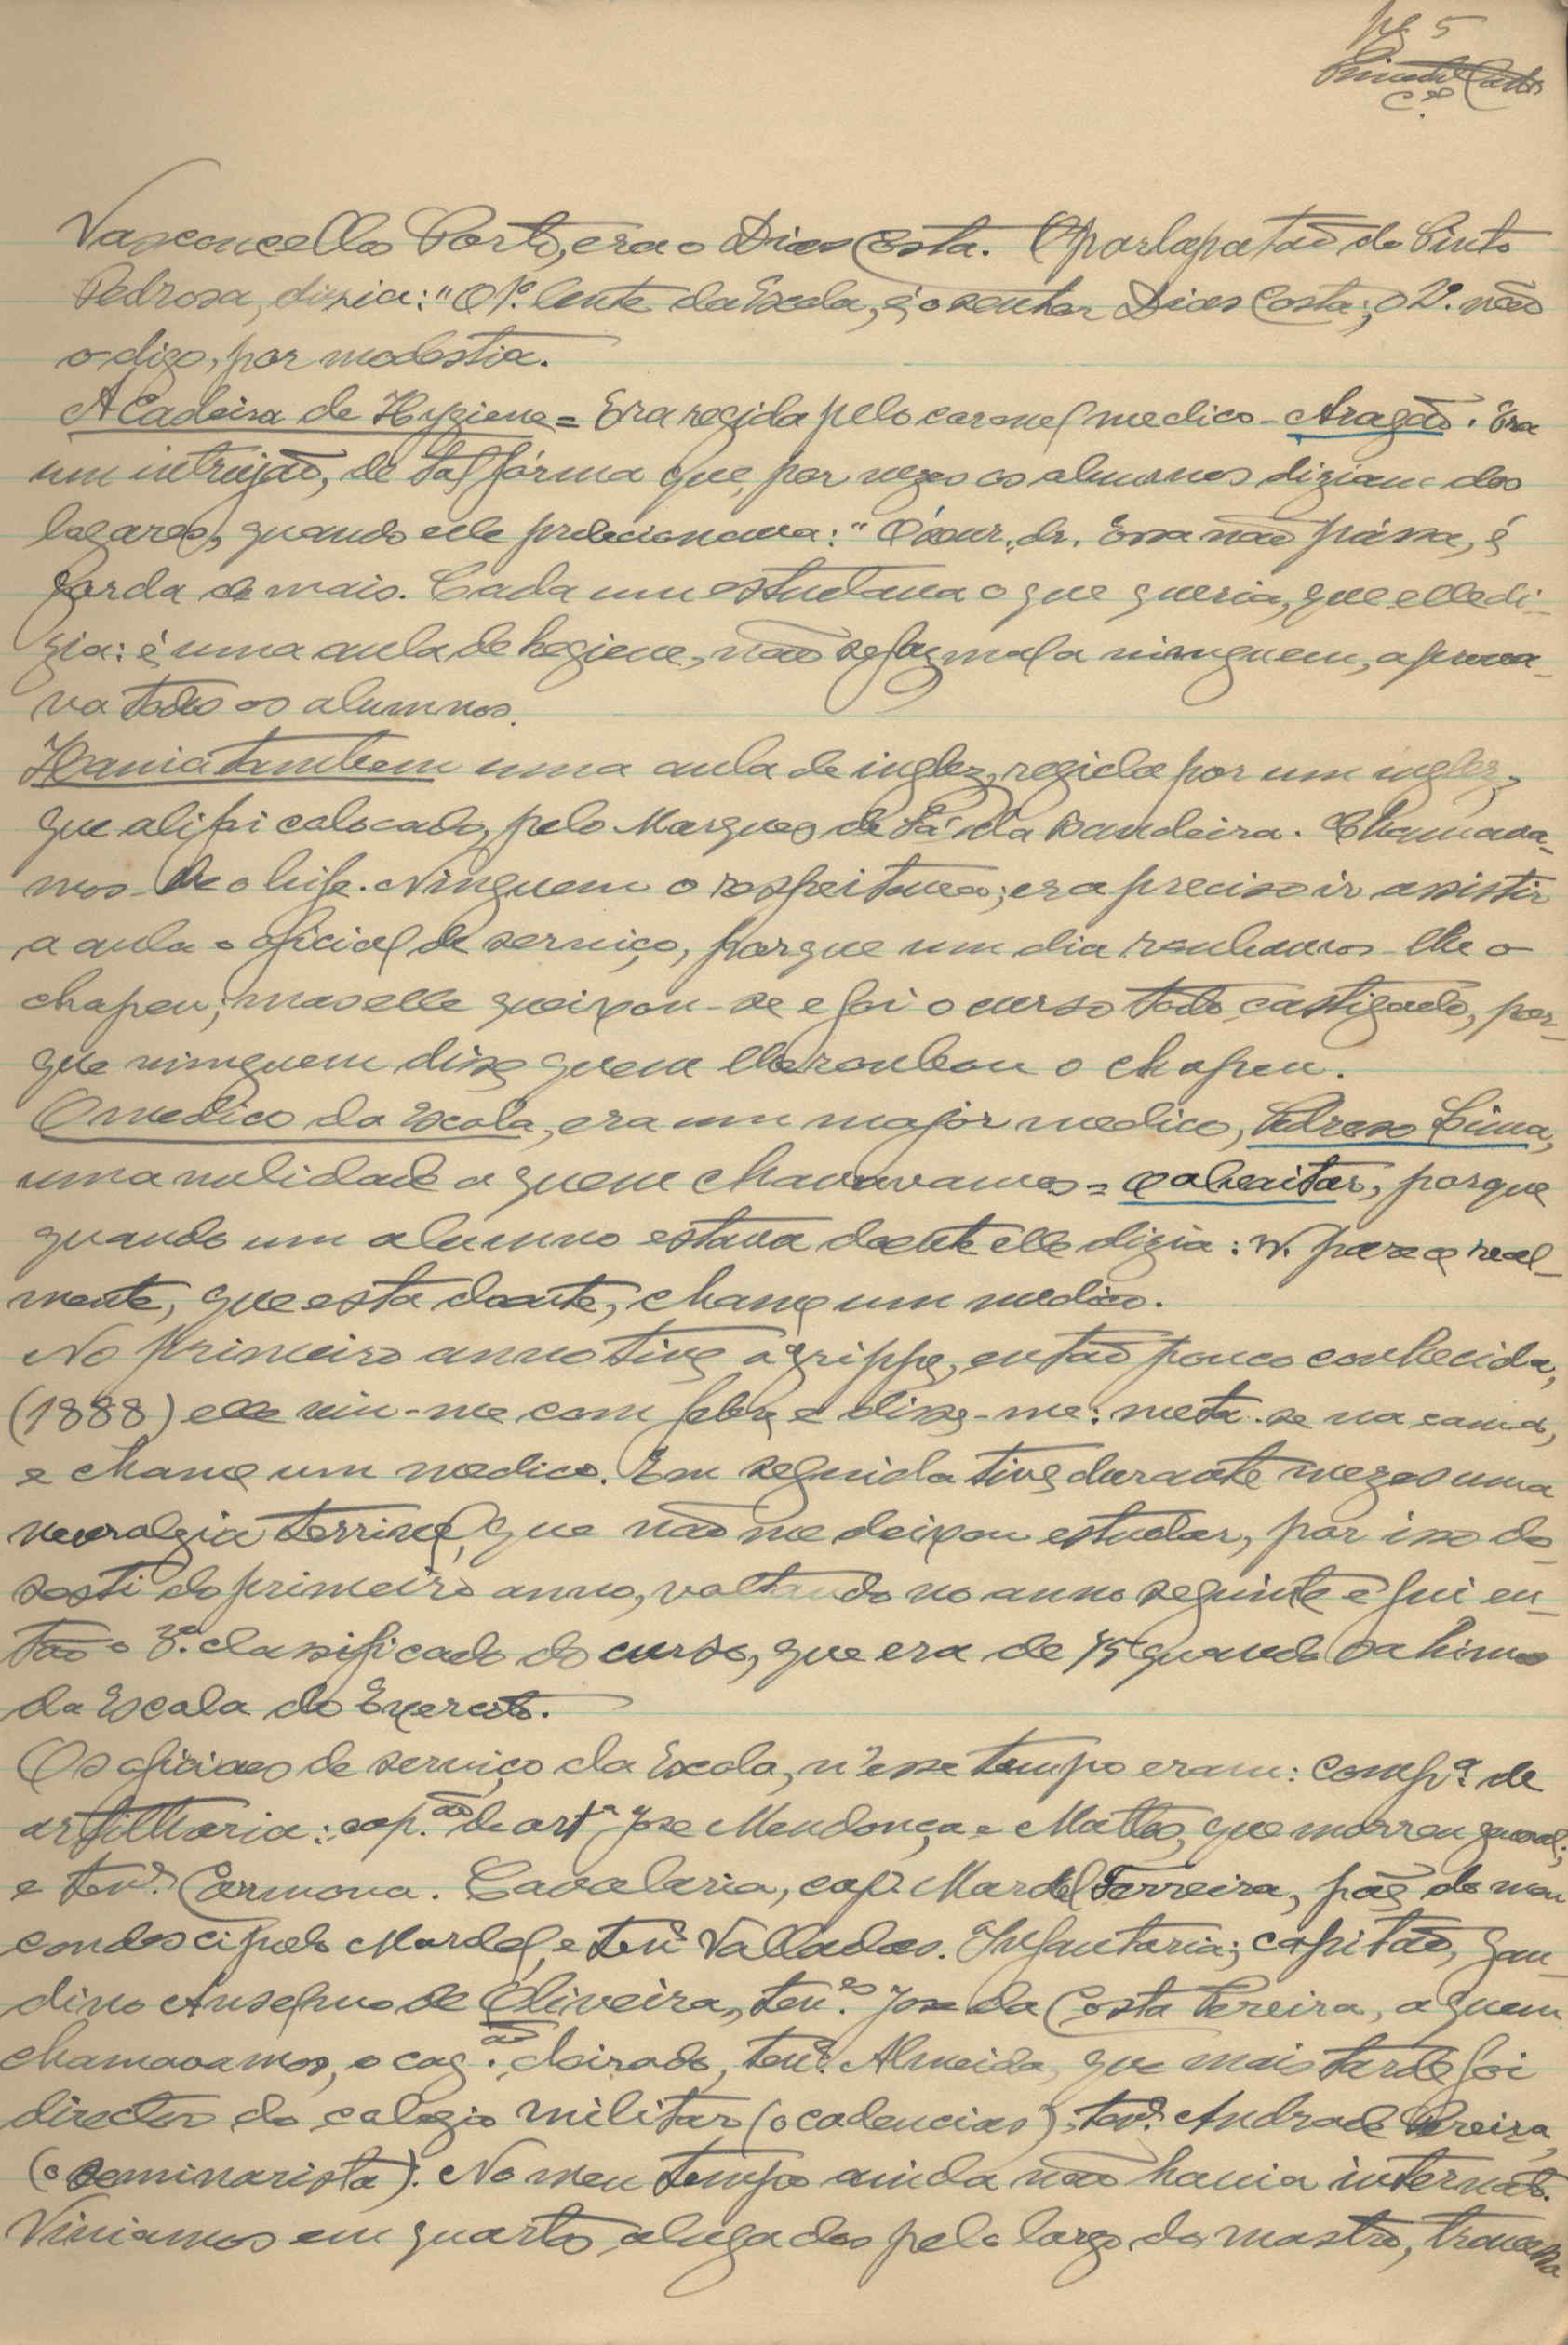 pg 5
Vasconcellos Porto, era o Dias Costa. O parlapatão do Pinto
Pedrosa, dizia: "O 1º. lente da Escola, é o senhor Dias Costa; o 2º. não
o digo, por modestia.
A Cadeira de Hygiene = Era regida pelo coronel medico - Aragão. Era
um intrujão, de tal fórma que, por vezes os alumnos diziam dos
logares, quando elle prelecionava: " dr. Essa não pássa, é
gorda de mais. Cada um estudava o que queria, que elle di-
zia: é uma aula de hegiene, não se faz mal a ninguem, aprova-
va todos os alumnos.
Havia tambem uma aula de inglez, regida por um inglez,
que ali foi colocado, pelo Marquez de Sá da Bandeira. Chamava-
mos-lhe o bife. Ninguem o respeitava; era preciso ir assistir
a aula o oficial de serviço, porque um dia roubamos-lhe o
chapeu; mas elle queixou-se e foi o curso todo castigado, por-
que ninguem disse quem lhe roubou o chapeu.
O medico da Escola, era um major medico, Pedroso Lima,
uma nulidade a quem chamavamos = o alveitar, porque
quando um alumno estava doente elle dizia: V. parece real-
mente, que esta doente, chame um medico.
No primeiro anno tive a grippe, então pouco conhecida,
(1888) elle viu-me com febre e disse-me: meta-se na cama,
e chame um medico. Em seguida tive durante mezes uma
nevralgia terrivel, que não me deixou estudar, por isso de-
sesti do primeiro anno, voltando no anno seguinte e fui en-
tão o 3º. classificado do curso, que era de 75 quando sahimos
da Escola do Exercito.
Os oficiaes de serviço da Escola, n'esse tempo eram: compª. de
artilharia: cap.ão de artª José Mendonça e Mattos, que morreu general;
e tenº. Carmona. Cavalaria, cap. Mardel Ferreira, páe do meu
condiscipulo Mardel, e tenº Valladas. Infantaria; capitão, Gau-
dino Anselmo de Oliveira, ten.es José da Costa Pereira, a quem
chamavamos, o cag.ão cheirado, tenº. Almeida, que mais tarde foi
director do colegio militar (o cadencias), tenº. Andrade Pereira,
(o seminarista). No meu tempo ainda não havia internato.
Viviamos em quartos alugados pelo largo do mastro, travessa